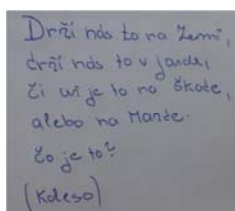 Drží nás to na Zemi,
drží nás to v jande,
či už je to na Škode,
alebo na Mande.
Čo je to?
(Koleso)